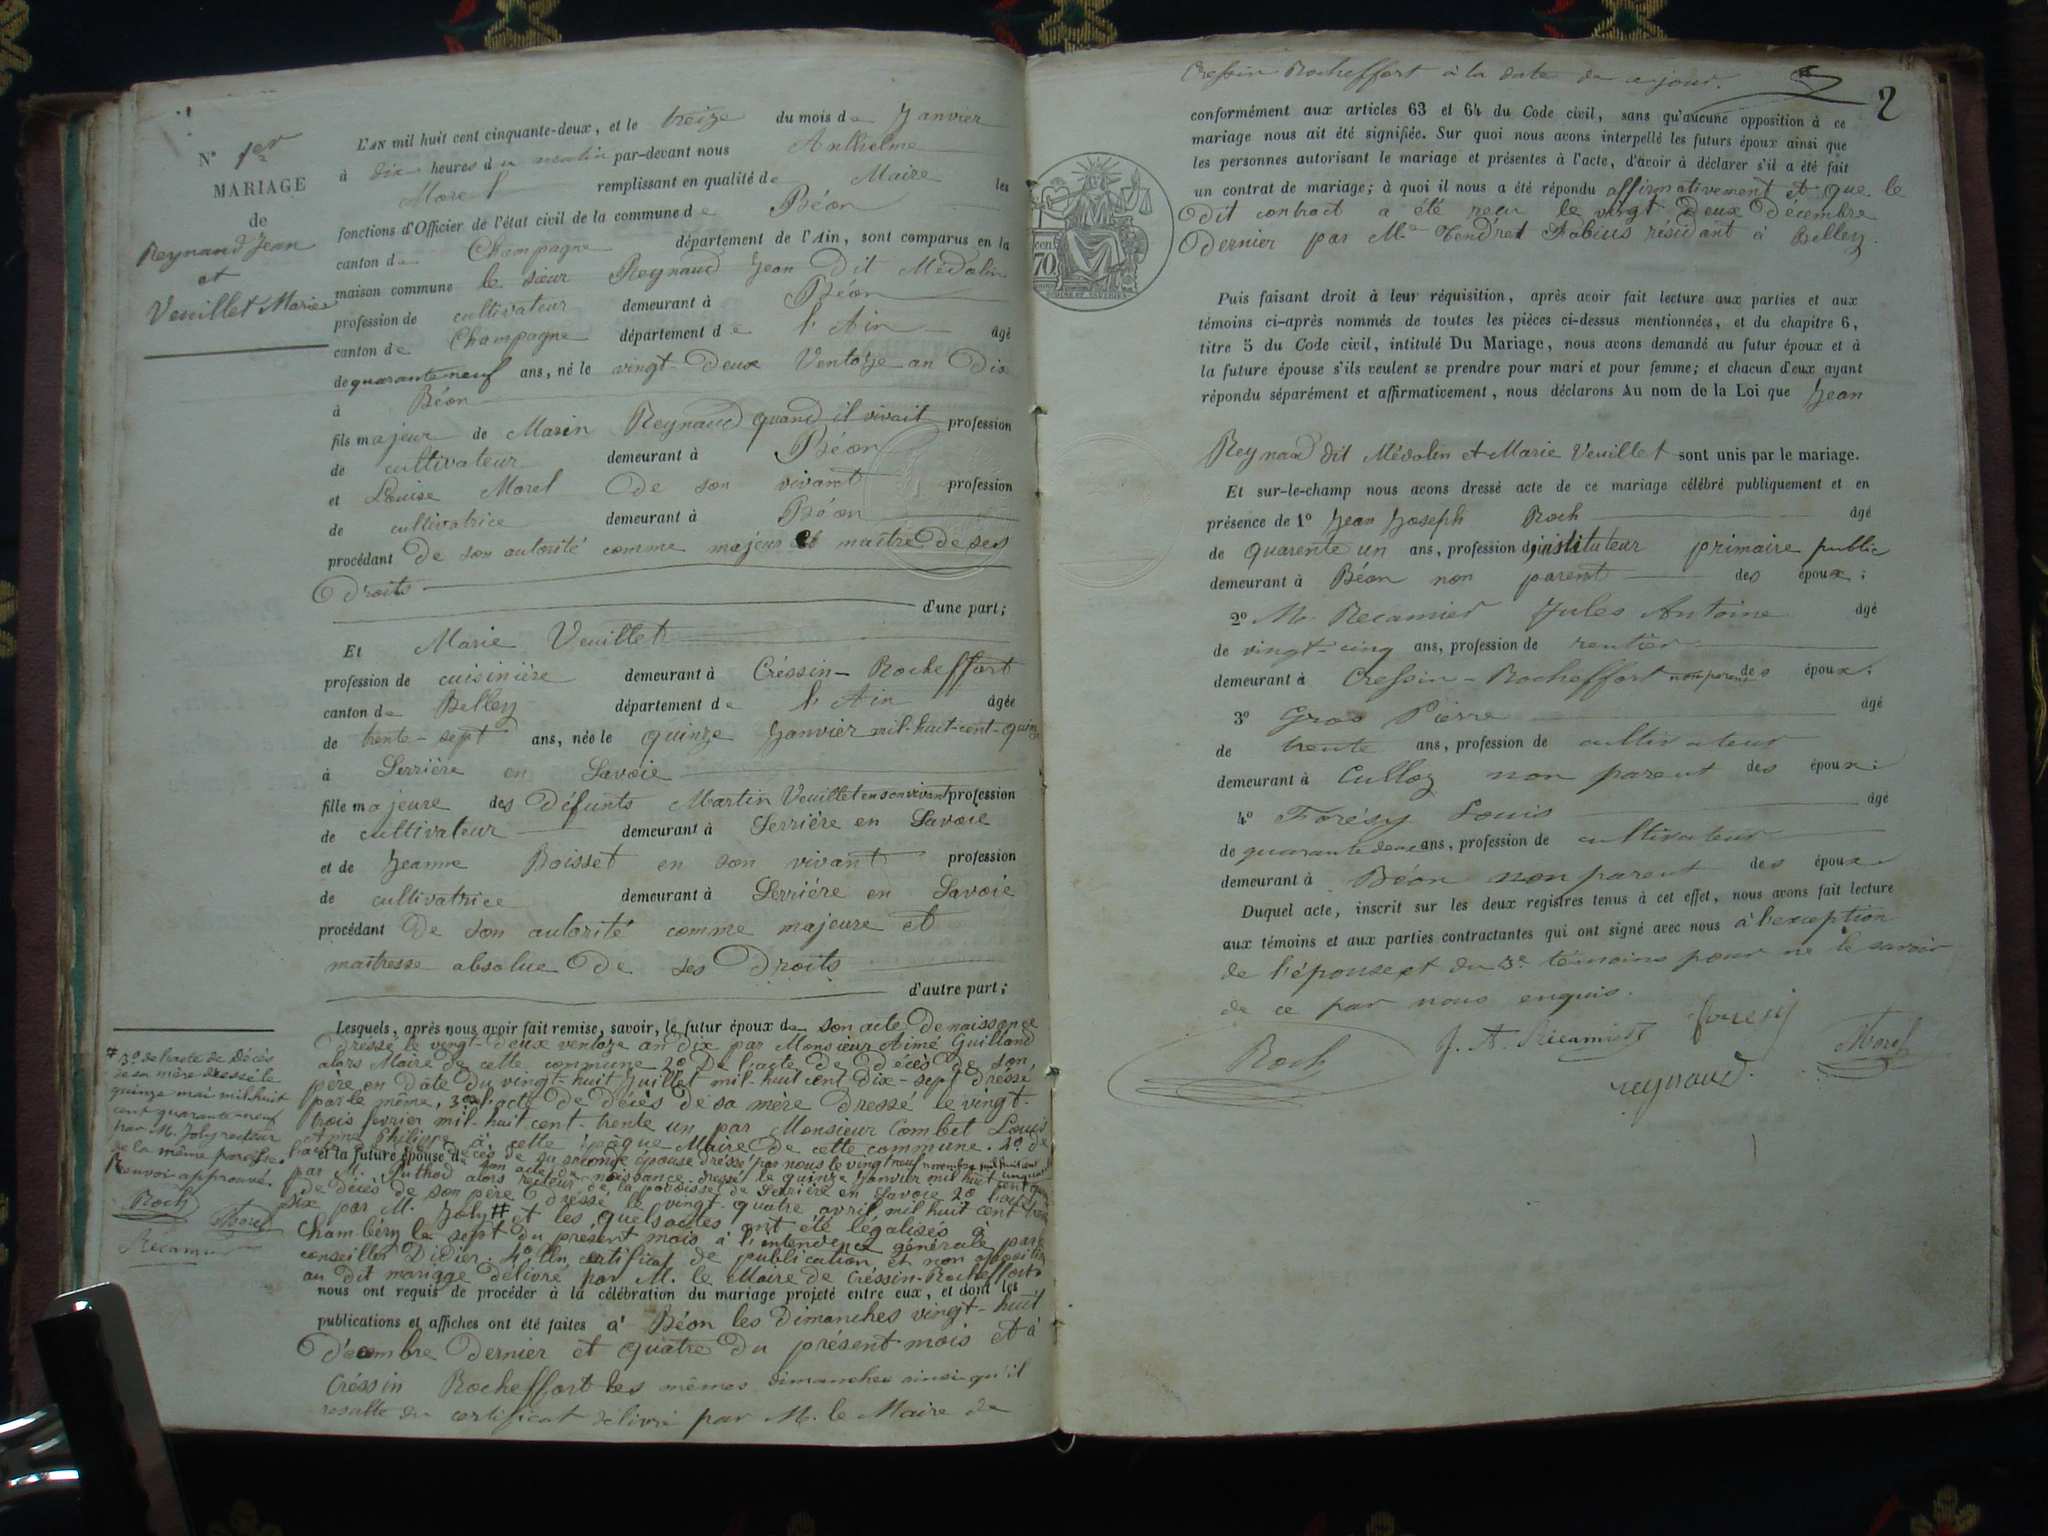 N° 1er
MARIAGE
de
Reynaud Jean
et
Veuillet Marie
L'AN mil huit cent cinquante-deux, et le treize du mois de Janvier
à dix heures du matin par-devant nous Anthelme
Morel remplissant en qualité de Maire les
fonctions d'Officier de l'état civil de la commune de Béon
canton de Champagne département de l'Ain, sont comparus en la
maison commune le sieur Reynaud Jean dit Médolin
profession de cultivateur demeurant à Béon
canton de Champagne département de l'Ain âgé
de quarante neuf ans, né le vingt-deux Ventoze an Dix
à Béon
fils majeur de Marin Reynaud quand il vivait profession
de cultivateur demeurant à Béon
et Louise Morel de son vivant profession
de cultivatrice demeurant à Béon
procédant de son autorité comme majeur et maître de ses
droits
d'une part;
Et Marie Veuillet
profession de cuisinière demeurant à Créssin-Rocheffort
canton de Belley département de l'Ain âgée
de trente-sept ans, née le quinze Janvier mil-huit-cent-quinze
à Serrière en Savoie
fille majeure des défunts Martin Veuillet en son vivant profession
de cultivateur demeurant à Serriére en Savoie
et de Jeanne Boisset en son vivant profession
de cultivatrice demeurant à Serriére en Savoie
procédant de son autorité comme majeure et
maîtresse absolue de ses droits
d'autre part;
Lesquels, après nous avoir fait remise, savoir, le futur époux de son acte de naissance
dressé le vingt-deux ventoze an dix par Monsieur Aimé Guilland
alors Maire de cette commune 2° De l'acte de décès de son
père en date du vingt-huit Juillet mil-huit cent dix-sept dressé
par le même, 3° l'acte de décès de sa mère dressé le vingt-
trois fevrier mil-huit cent-trente un par Monsieur Combet Louis
Philippe à cette époque Maire de cette commune. 4° de
l'acte de décès de sa seconde épouse dressé par nous le vingt neuf novembre mil huit cent
et la future épouse de son acte de naissance dressé le quinze Janvier mil huit cent quinze
par M. Puthod alors recteur de la paroisse de Serrière en Savoie 2° l'acte
de décès de son père dressé le vingt-quatre avril mil huit cent
six par M. Joly # et les quels actes ont été légalisés à
Chambéry le sept du présent mois à l'intendance générale par
conseiller Didier. 4° Un certificat de publication et non opposition
au dit mariage délivré par M. le Maire de Créssin-Rocheffort
nous ont requis de procéder à la célébration du mariage projeté entre eux, et dont les
publications et affiches ont été faites à Béon les dimanches vingt-huit
Décembre dernier et quatre du présent mois et à
Créssin Rocheffort les mêmes dimanches ainsi qu'il
resulte du certificat délivré par M. le Maire de
# 3° de l'acte de décès
de sa mère dressé le
quinze mai mil huit
cent quarante-neuf
par M. Joly recteur
de la même paroisse.
Renvoi approuvé.
Roch
Morel
Recamier
Cressin Rocheffort à la date de ce jour.
2
conformément aux articles 63 et 64 du Code civil, sans qu'aucune opposition à ce
mariage nous ait été signifiée. Sur quoi nous avons interpellé les futurs époux ainsi que
les personnes autorisant le mariage et présentes à l'acte, d'avoir à déclarer s'il a été fait
un contrat de mariage; à quoi il nous a été répondu affirmativement et que le
dit contract a été reçu le vingt-deux décembre
dernier par Me Tendret Fabius résidant à Belley.
cen
70
Puis faisant droit à leur réquisition, après avoir fait lecture aux parties et aux
témoins ci-après nommés de toutes les pièces ci-dessus mentionnées, et du chapitre 6,
titre 5 du Code civil, intitulé Du Mariage, nous avons demandé au futur époux et à
la future épouse s'ils veulent se prendre pour mari et pour femme; et chacun d'eux ayant
répondu séparément et affirmativement, nous déclarons Au nom de la Loi que Jean
Reynaud dit Médolin et Marie Veuillet sont unis par le mariage.
Et sur-le-champ nous avons dressé acte de ce mariage célébré publiquement et en
présence de 1° Jean Joseph Roch âgé
de quarente un ans, profession d'instituteur primaire public
demeurant à Béon non parent des époux;
2° M. Recamier Jules Antoine âgé
de vingt-cinq ans, profession de rentier
demeurant à Cressin-Rocheffort non parent des époux;
3° Gros Pierre âgé
de trente ans, profession de cultivateur
demeurant à Culloz non parent des époux;
4° Forésy Louis âgé
de quarante deux ans, profession de cultivateur
demeurant à Béon non parent des époux
Duquel acte, inscrit sur les deux registres tenus à cet effet, nous avons fait lecture
aux témoins et aux parties contractantes qui ont signé avec nous à l'exception
de l'épouse et du 3e témoins pour ne le savoir
de ce par nous enquis.
Roch
J. A. Récamier
foresy
Morel
reynaud.